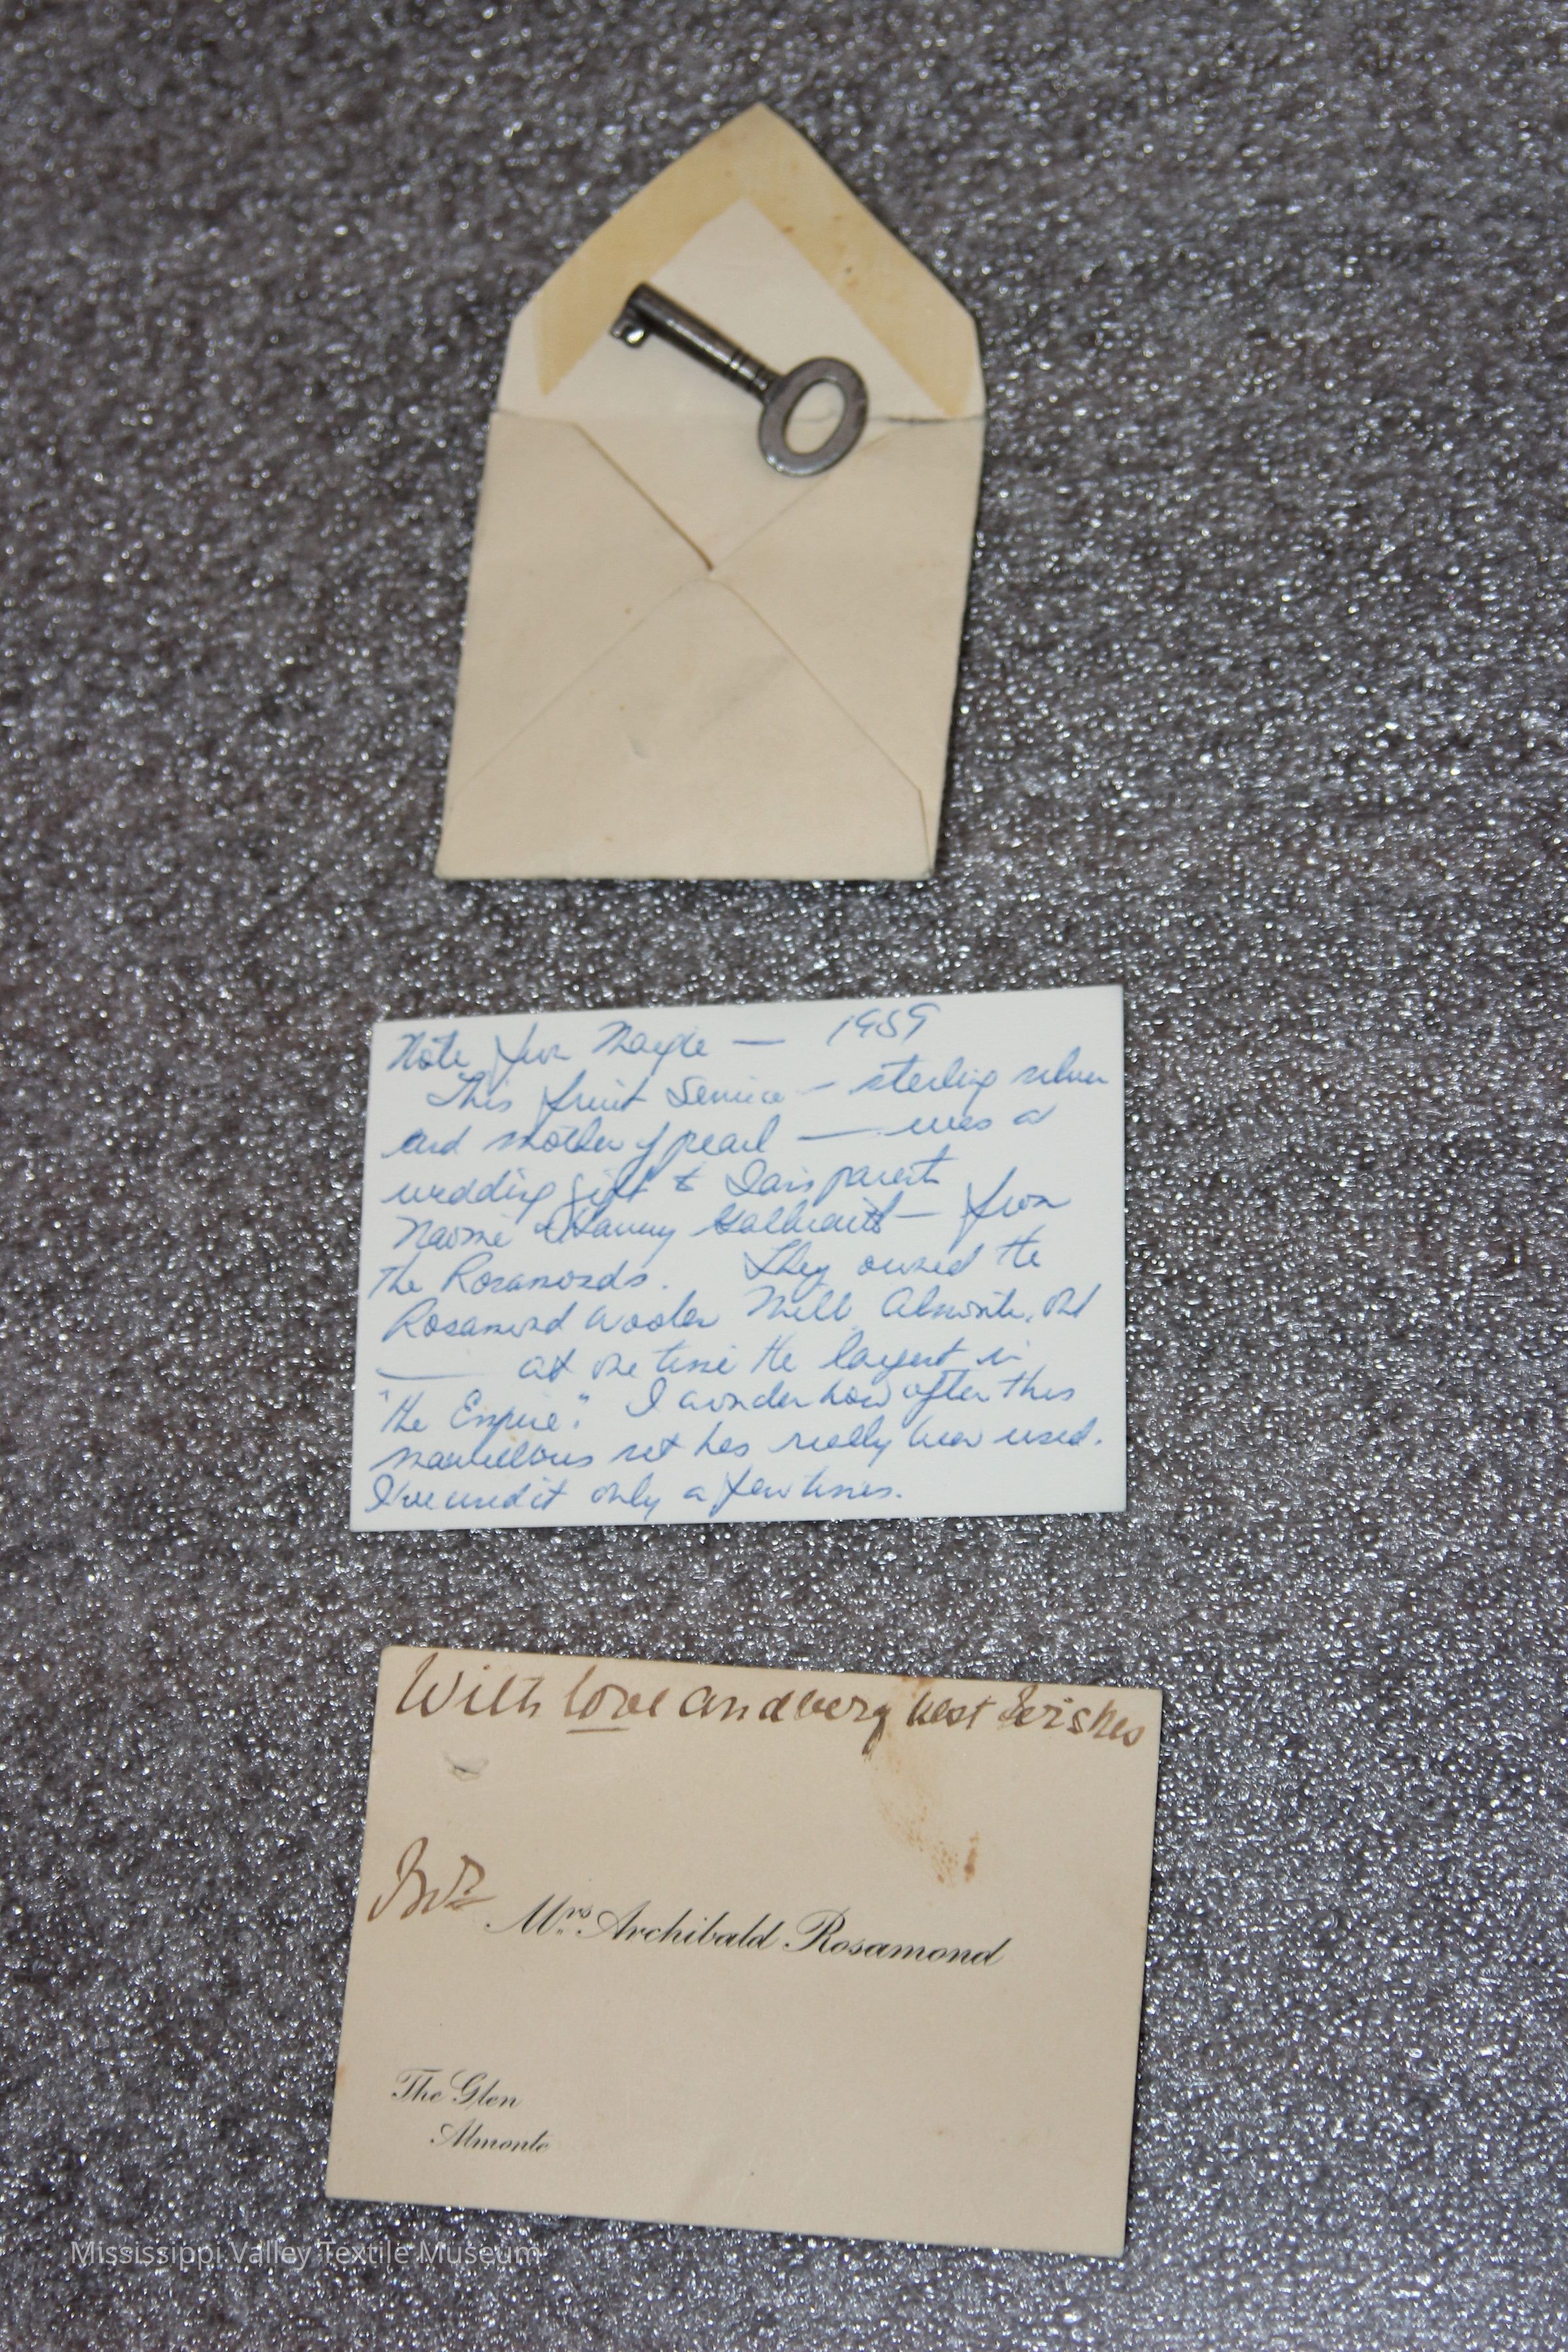 Note from Mayde — 1989
This fruit service — sterling silver
and mother of pearl — was a
wedding gift to Iain's parents
Naomi & Harvey Galbraith — from
the Rosamonds. They owned the
Rosamond Woolen Mill Almonte, Ont
— at one time the largest in
"the Empire". I wonder how often this
marvellous set has really been used.
I've used it only a few times.
With love and very best wishes
Mrs. Archibald Rosamond
The Glen
Almonte
Mississippi Valley Textile Museum